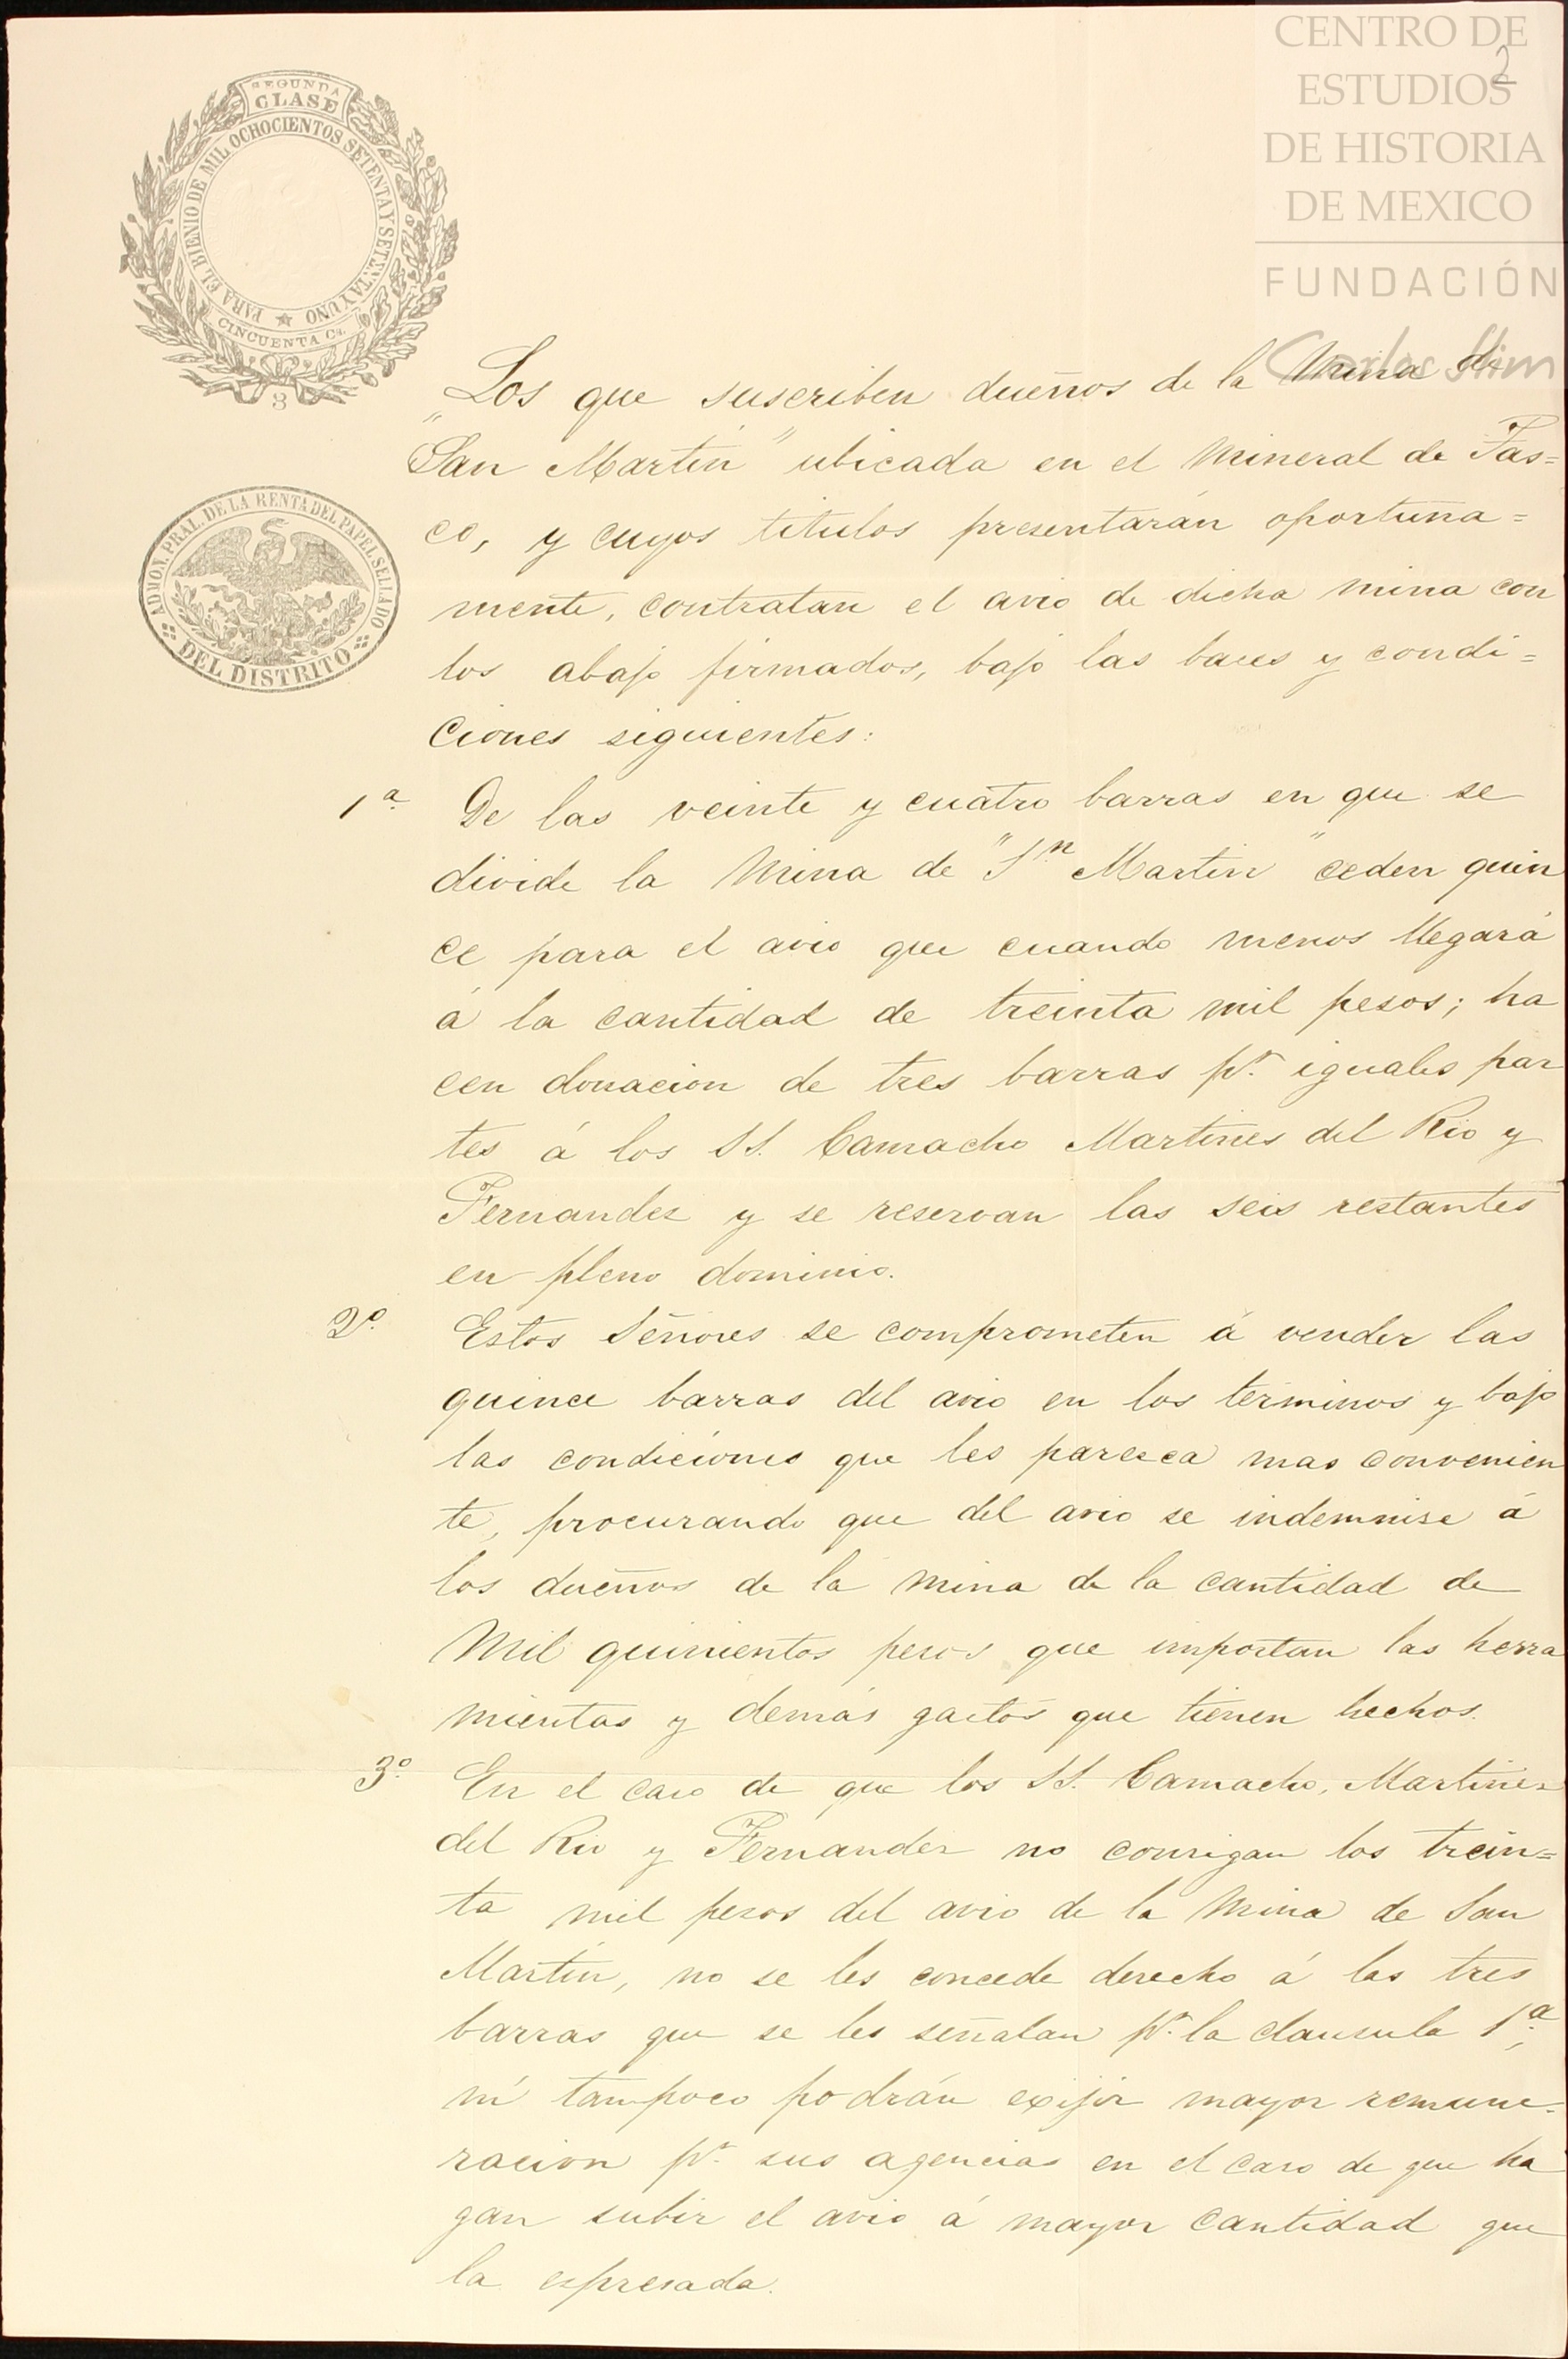 CENTRO DE
ESTUDIOS
DE HISTORIA
DE MEXICO
FUNDACIÓN
Carlos Slim
2
SEGUNDA
CLASE
PARA EL BIENIO DE MIL OCHOCIENTOS SETENTA Y SETENTA Y UNO
CINCUENTA Cs.
3
ADMON. PRAL. DE LA RENTA DEL PAPEL SELLADO
DEL DISTRITO
Los que suscriben dueños de la Mina de
"San Martin" ubicada en el Mineral de Tas=
co, y cuyos titulos presentarán oportuna=
mente, contratan el avio de dicha mina con
los abajo firmados, bajo las bases y condi=
ciones siguientes:
1ª. De las veinte y cuatro barras en que se
divide la Mina de "Sn. Martin" ceden quin
ce para el avio que cuando menos llegará
á la cantidad de treinta mil pesos; ha
cen donacion de tres barras pr. iguales par
tes á los SS. Camacho Martines del Rio y
Fernandez y se reservan las seis restantes
en pleno dominio.
2º. Estos Señores se comprometen á vender las
quince barras del avio en los terminos y bajo
las condiciones que les paresca mas convenien
te, procurando que del avio se indemnise á
los dueños de la mina de la cantidad de
Mil quinientos pesos que importan las herra
mientas y demás gastos que tienen hechos.
3º. En el caso de que los SS. Camacho, Martinez
del Rio y Fernandez no consigan los trein=
ta mil pesos del avio de la Mina de San
Martin, no se les concede derecho á las tres
barras que se les señalan pr. la clausula 1ª.,
ni tampoco podrán exijir mayor remune-
racion pr. sus agencias en el caso de que ha
gan subir el avio á mayor cantidad que
la espresada.